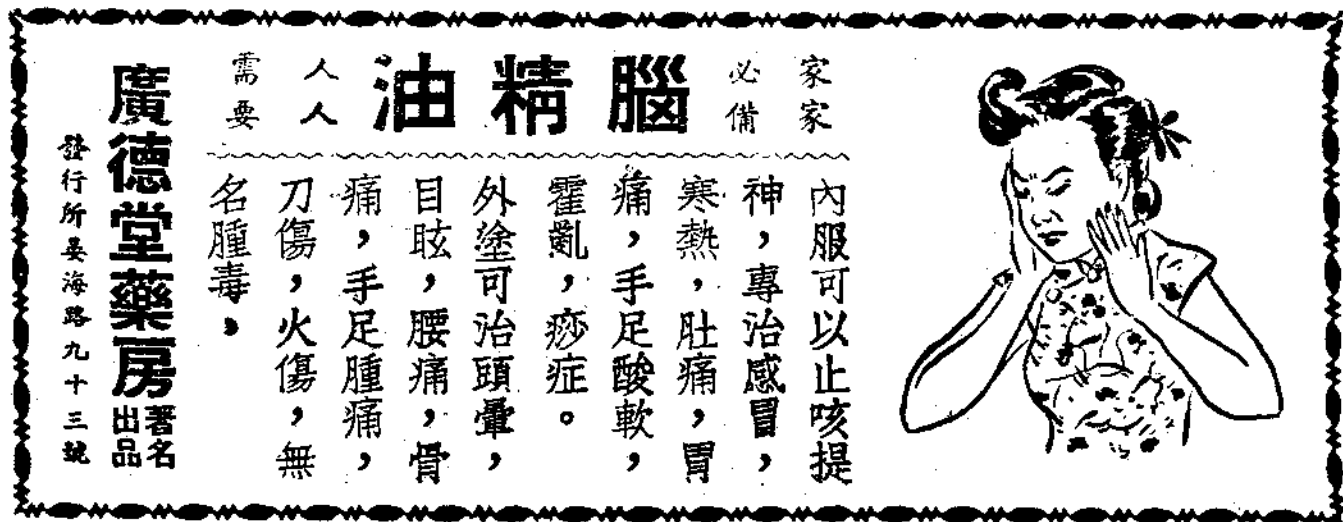 家家
必備
腦精油
人人
需要
內服可以止咳提
神，專治感冒，
寒熱，肚痛，胃
痛，手足酸軟，
霍亂，痧症。
外塗可治頭暈，
目眩，腰痛，骨
痛，手足腫痛，
刀傷，火傷，無
名腫毒，
廣德堂藥房
著名
出品
發行所晏海路九十三號